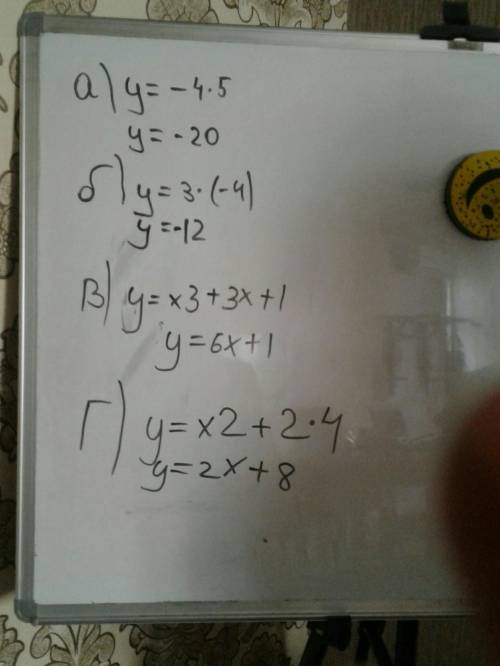 а) y = -4·5
y = -20
б) y = 3·(-4)
y = -12
в) y = x3 + 3x + 1
y = 6x + 1
г) y = x2 + 2·4
y = 2x + 8